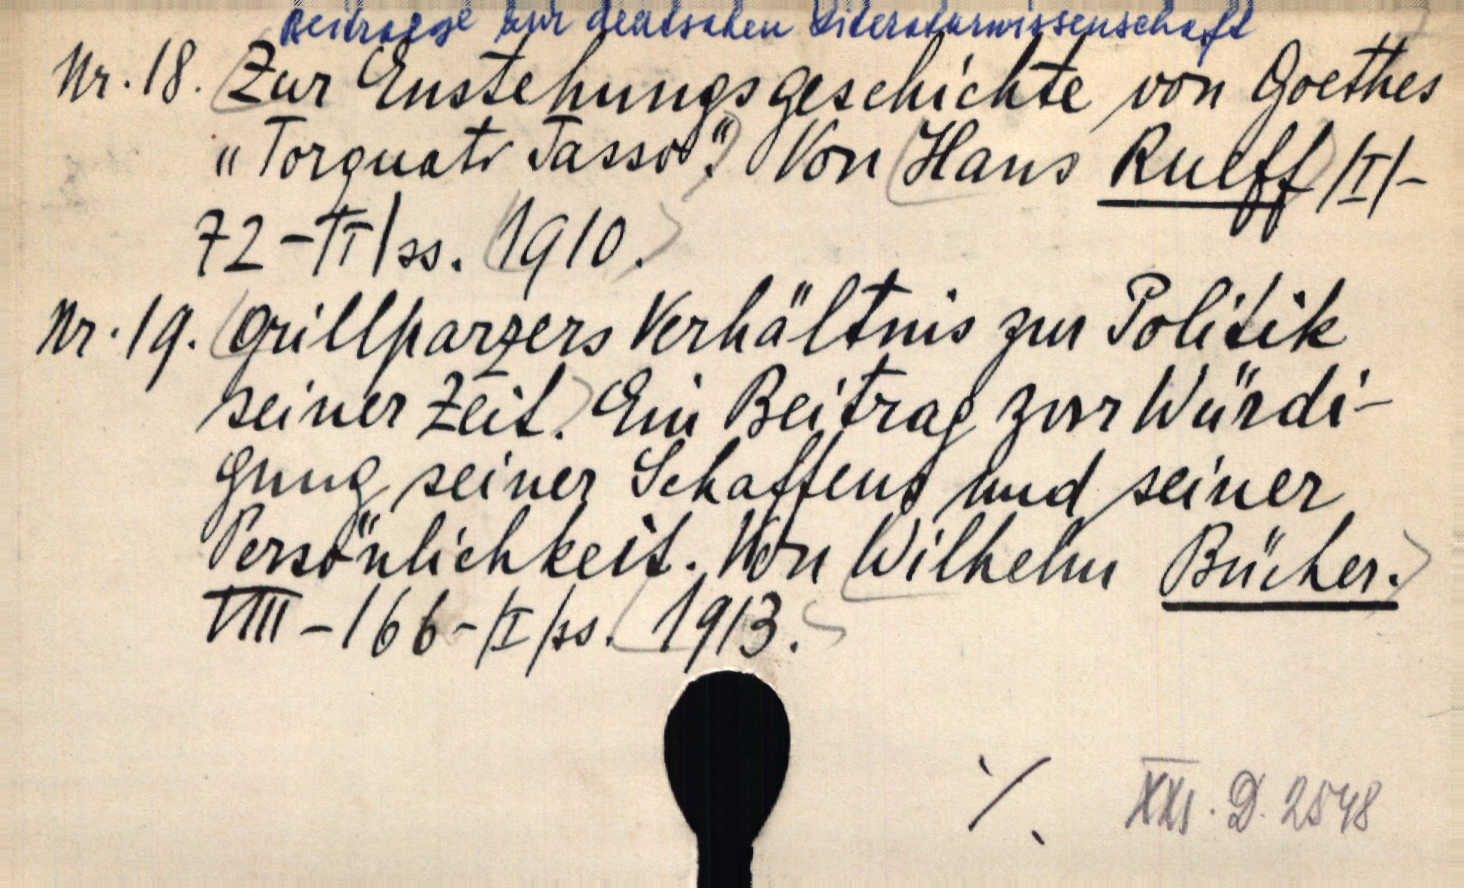 Beitraege zur deutschen Literaturwissenschaft
Nr. 18. Zur Enstehungsgeschichte von Goethes
„Torquato Tasso". Von Hans Rueff /I/-
72-II/ss. 1910.
Nr. 19. Grillparzers Verhältnis zur Politik
seiner Zeit. Ein Beitrag zur Würdi-
gung seiner Schaffens und seiner
Persönlichkeit. Von Wilhelm Bücher.
VIII-166-/I/ss. 1913.
./. XXI. D. 2548